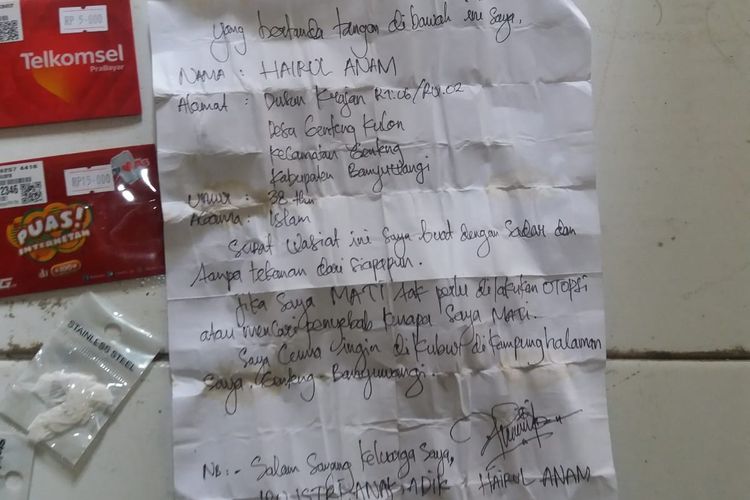 RP 5-000
Telkomsel
PraBayar
4416
RP15-000
12346
PUAS!
INTERNETAN
STAINLESS STEEL
yang bertanda tangan di bawah ini saya,
NAMA : HAIRUL ANAM
Alamat : Dusun Krajan RT.06/RW.02
Desa Genteng Kulon
Kecamatan Genteng
Kabupaten Banyuwangi
Umur : 38 thn
Agama : Islam
Surat wasiat ini saya buat dengan sadar dan
tanpa tekanan dari siapapun.
Jika saya MATI tak perlu dilakukan OTOPSI
atau mencari penyebab kenapa saya MATI.
Saya Cuma ingin dikubur di kampung halaman
saya, Genteng Banyuwangi.
NB : - Salam Sayang keluarga saya,
ISTRI ANAK ADIK HAIRUL ANAM